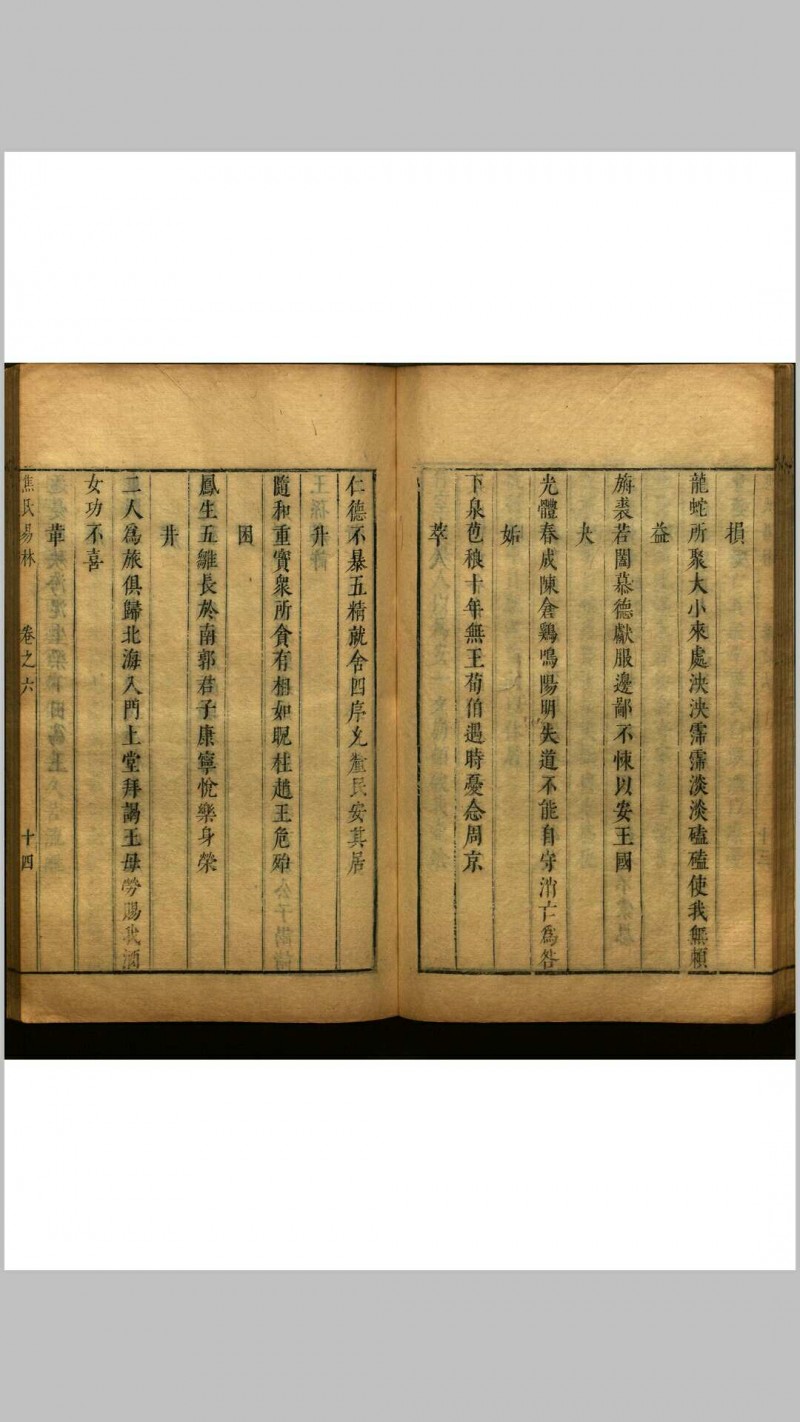 損
龍蛇所聚大小來處泱泱霈霈淡淡磕磕使我無賴
益
旃裘苫閭慕德獻服邊鄙不悚以安王國
夬
光體春成陳倉鷄鳴陽明失道不能自守消亡為咎
姤
下泉苞稂十年無王荀伯遇時憂念周京
萃
仁德不暴五精就舍四序允釐民安其居
升
隨和重寶衆所貪有相如睨柱趙王危殆
困
鳳生五雛長於南郭君子康寧悅樂身榮
井
二人為旅俱歸北海入門上堂拜謁王母勞賜我酒
女功不喜
革
焦氏易林 卷之六 十四